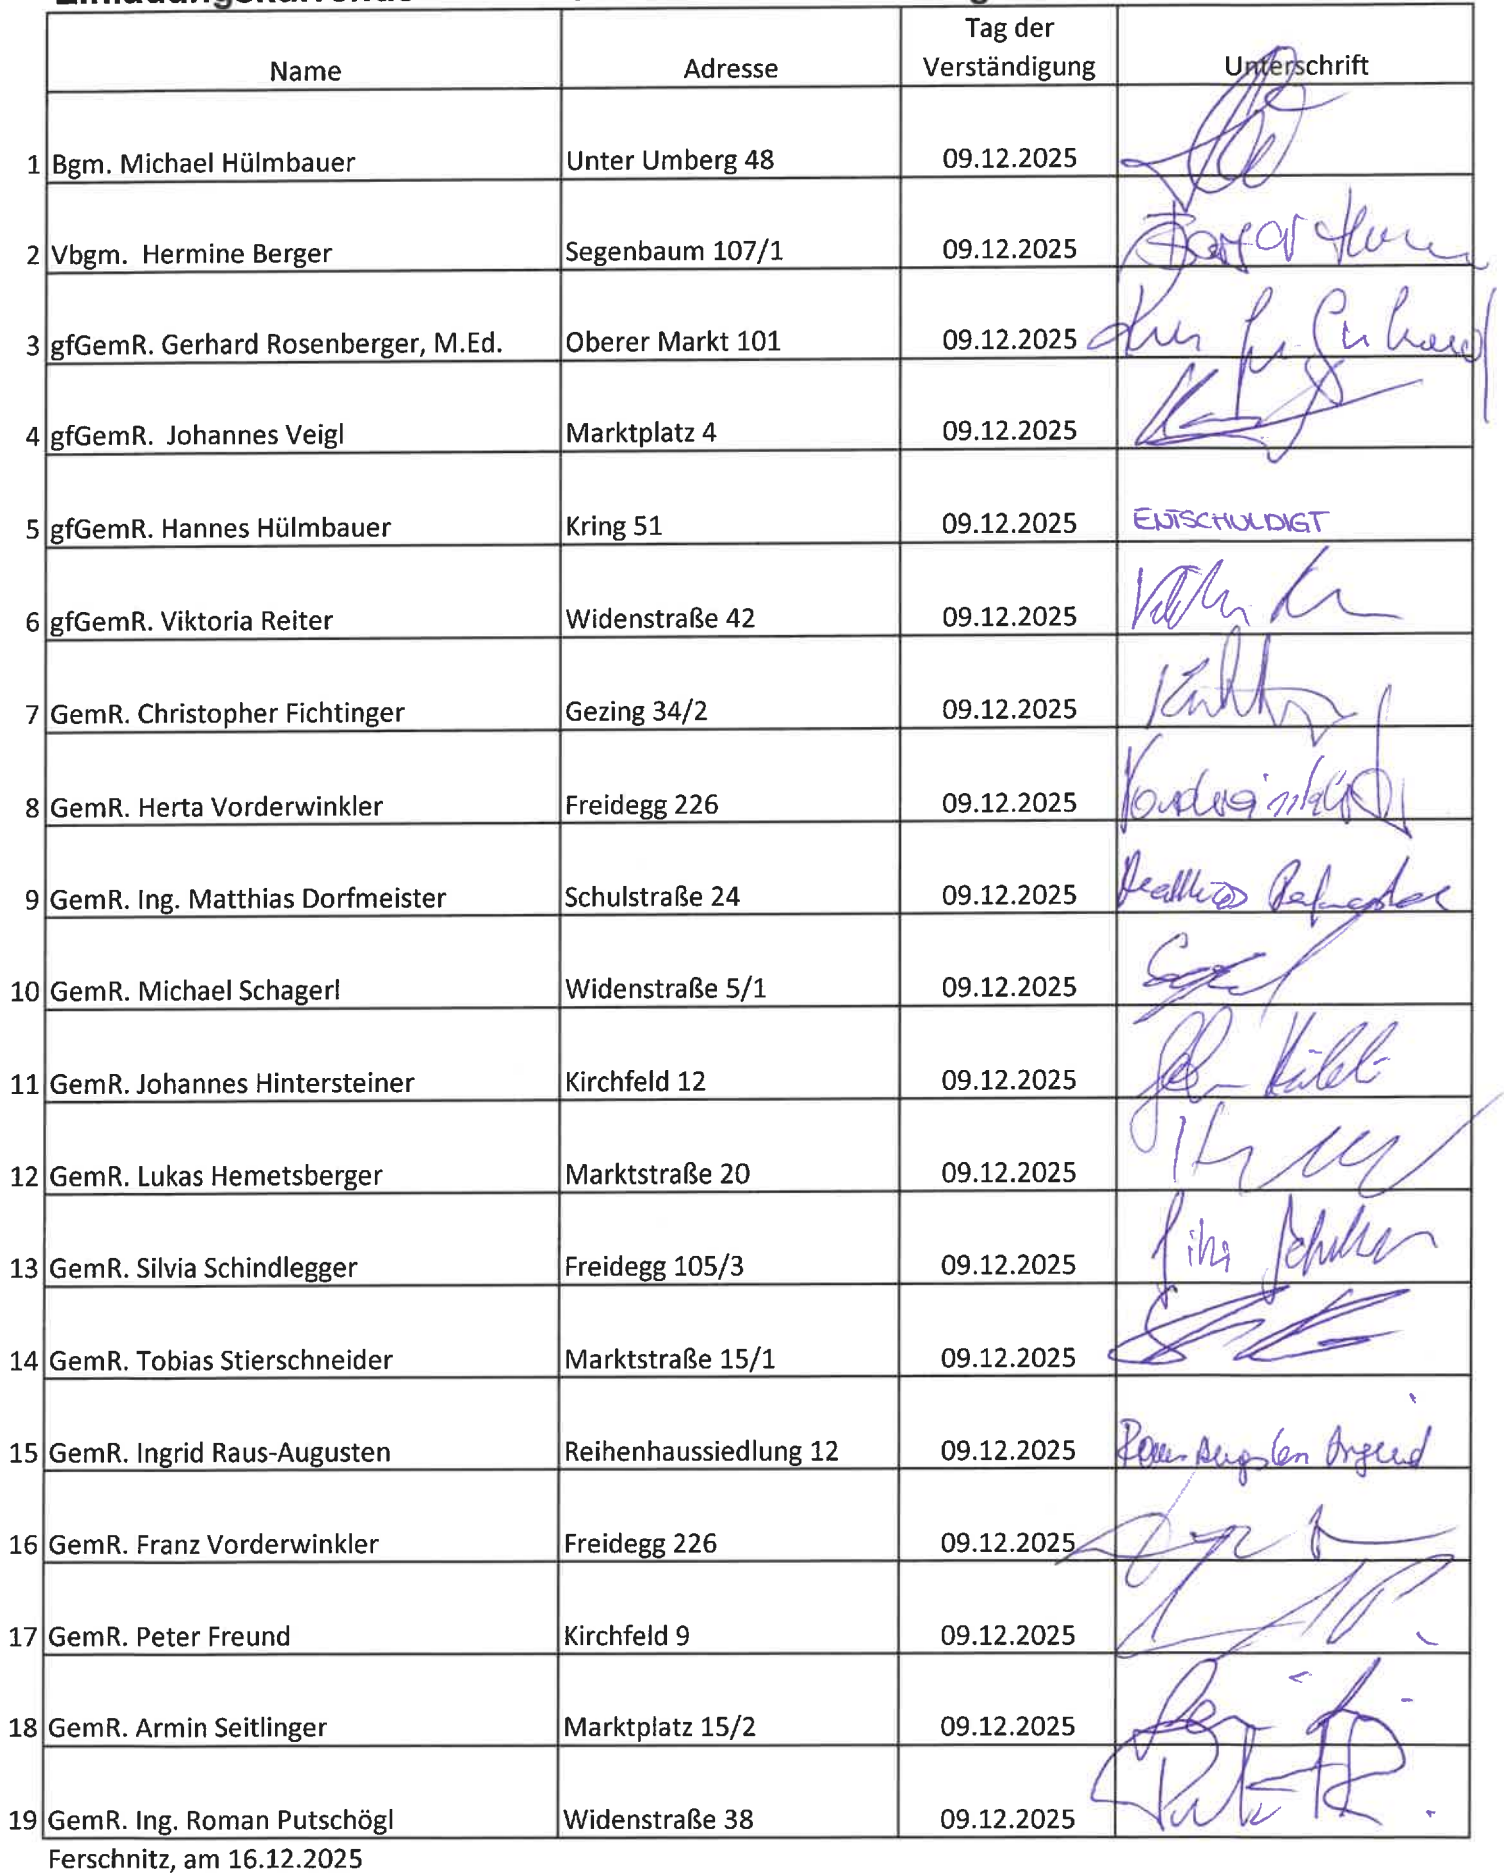 Name Adresse Tag der Verständigung Unterschrift
1 Bgm. Michael Hülmbauer Unter Umberg 48 09.12.2025
2 Vbgm. Hermine Berger Segenbaum 107/1 09.12.2025
3 gfGemR. Gerhard Rosenberger, M.Ed. Oberer Markt 101 09.12.2025
4 gfGemR. Johannes Veigl Marktplatz 4 09.12.2025
5 gfGemR. Hannes Hülmbauer Kring 51 09.12.2025 ENTSCHULDIGT
6 gfGemR. Viktoria Reiter Widenstraße 42 09.12.2025
7 GemR. Christopher Fichtinger Gezing 34/2 09.12.2025
8 GemR. Herta Vorderwinkler Freidegg 226 09.12.2025
9 GemR. Ing. Matthias Dorfmeister Schulstraße 24 09.12.2025
10 GemR. Michael Schagerl Widenstraße 5/1 09.12.2025
11 GemR. Johannes Hintersteiner Kirchfeld 12 09.12.2025
12 GemR. Lukas Hemetsberger Marktstraße 20 09.12.2025
13 GemR. Silvia Schindlegger Freidegg 105/3 09.12.2025
14 GemR. Tobias Stierschneider Marktstraße 15/1 09.12.2025
15 GemR. Ingrid Raus-Augusten Reihenhaussiedlung 12 09.12.2025
16 GemR. Franz Vorderwinkler Freidegg 226 09.12.2025
17 GemR. Peter Freund Kirchfeld 9 09.12.2025
18 GemR. Armin Seitlinger Marktplatz 15/2 09.12.2025
19 GemR. Ing. Roman Putschögl Widenstraße 38 09.12.2025
Ferschnitz, am 16.12.2025